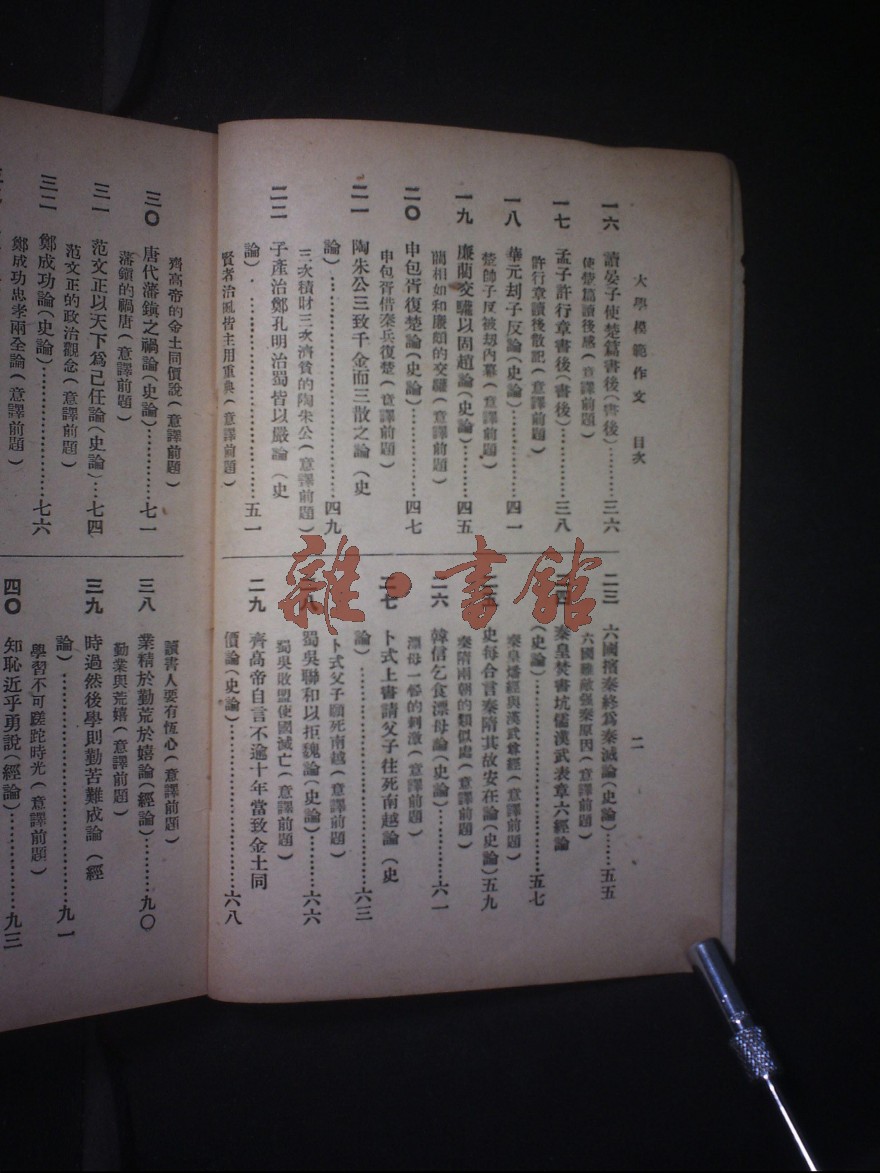 大學模範作文　目次
二
一六　讀晏子使楚篇書後(書後)………三六
使楚篇讀後感(意譯前題)
一七　孟子許行章書後(書後)…………三八
許行章讀後散記(意譯前題)
一八　華元刦子反論(史論)……………四一
楚帥子反被刦內幕(意譯前題)
一九　廉藺交驩以固趙論(史論)………四五
藺相如和廉頗的交驩(意譯前題)
二〇　申包胥復楚論(史論)……………四七
申包胥借秦兵復楚(意譯前題)
二一　陶朱公三致千金而三散之論(史
論)……………………………四九
三次積財三次濟貧的陶朱公(意譯前題)
二二　子產治鄭孔明治蜀皆以嚴論(史
論)……………………………五一
賢者治亂皆主用重典(意譯前題)
二三　六國擯秦終爲秦滅論(史論)……五五
六國難敵強秦原因(意譯前題)
二四　秦皇焚書坑儒漢武表章六經論
(史論)…………………………五七
秦皇燔經與漢武尊經(意譯前題)
二五　史每合言秦隋其故安在論(史論)五九
秦隋兩朝的類似處(意譯前題)
二六　韓信乞食漂母論(史論)…………六一
漂母一餐的刺激(意譯前題)
二七　卜式上書請父子往死南越論(史
論)……………………………六三
卜式父子願死南越(意譯前題)
二八　蜀吳聯和以拒魏論(史論)………六六
蜀吳敗盟使國滅亡(意譯前題)
二九　齊高帝自言不逾十年當致金土同
價論(史論)……………………六八
齊高帝的金土同價說(意譯前題)
三〇　唐代藩鎭之禍論(史論)…………七一
藩鎭的禍唐(意譯前題)
三一　范文正以天下爲己任論(史論)…七四
范文正的政治觀念(意譯前題)
三二　鄭成功論(史論)…………………七六
鄭成功忠孝兩全論(意譯前題)
讀書人要有恆心(意譯前題)
三八　業精於勤荒於嬉論(經論)………九〇
勤業與荒嬉(意譯前題)
三九　時過然後學則勤苦難成論(經
論)……………………………九一
學習不可蹉跎時光(意譯前題)
四〇　知恥近乎勇說(經論)……………九三
雜·書館